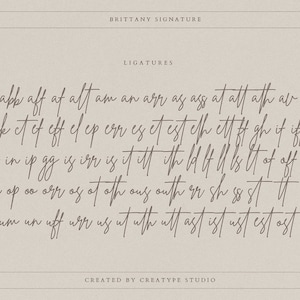 BRITTANY SIGNATURE
LIGATURES
abb aff af alt am an arr as ass at att ath av
ct ef eff el ep err es et est eth ett ff gh if iff
in ip gg is irr is it itt ith ld lf ll ls lt of off
op oo orr os ot oth ous outh rr sh ss st tt
um un uff urr us ut uth utt ast ist ust est ost
CREATED BY CREATYPE STUDIO